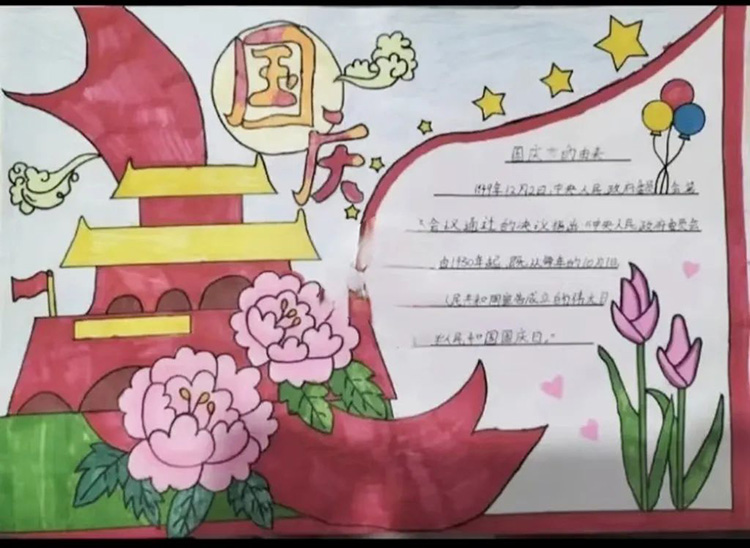 国庆
国庆节的由来
1949年12月2日,中央人民政府委员会第
会议通过的决议指出"中央人民政府委员会
自1950年起,
年的10月1日
民共和国宣告成立的伟大日
人民和国国庆日。"